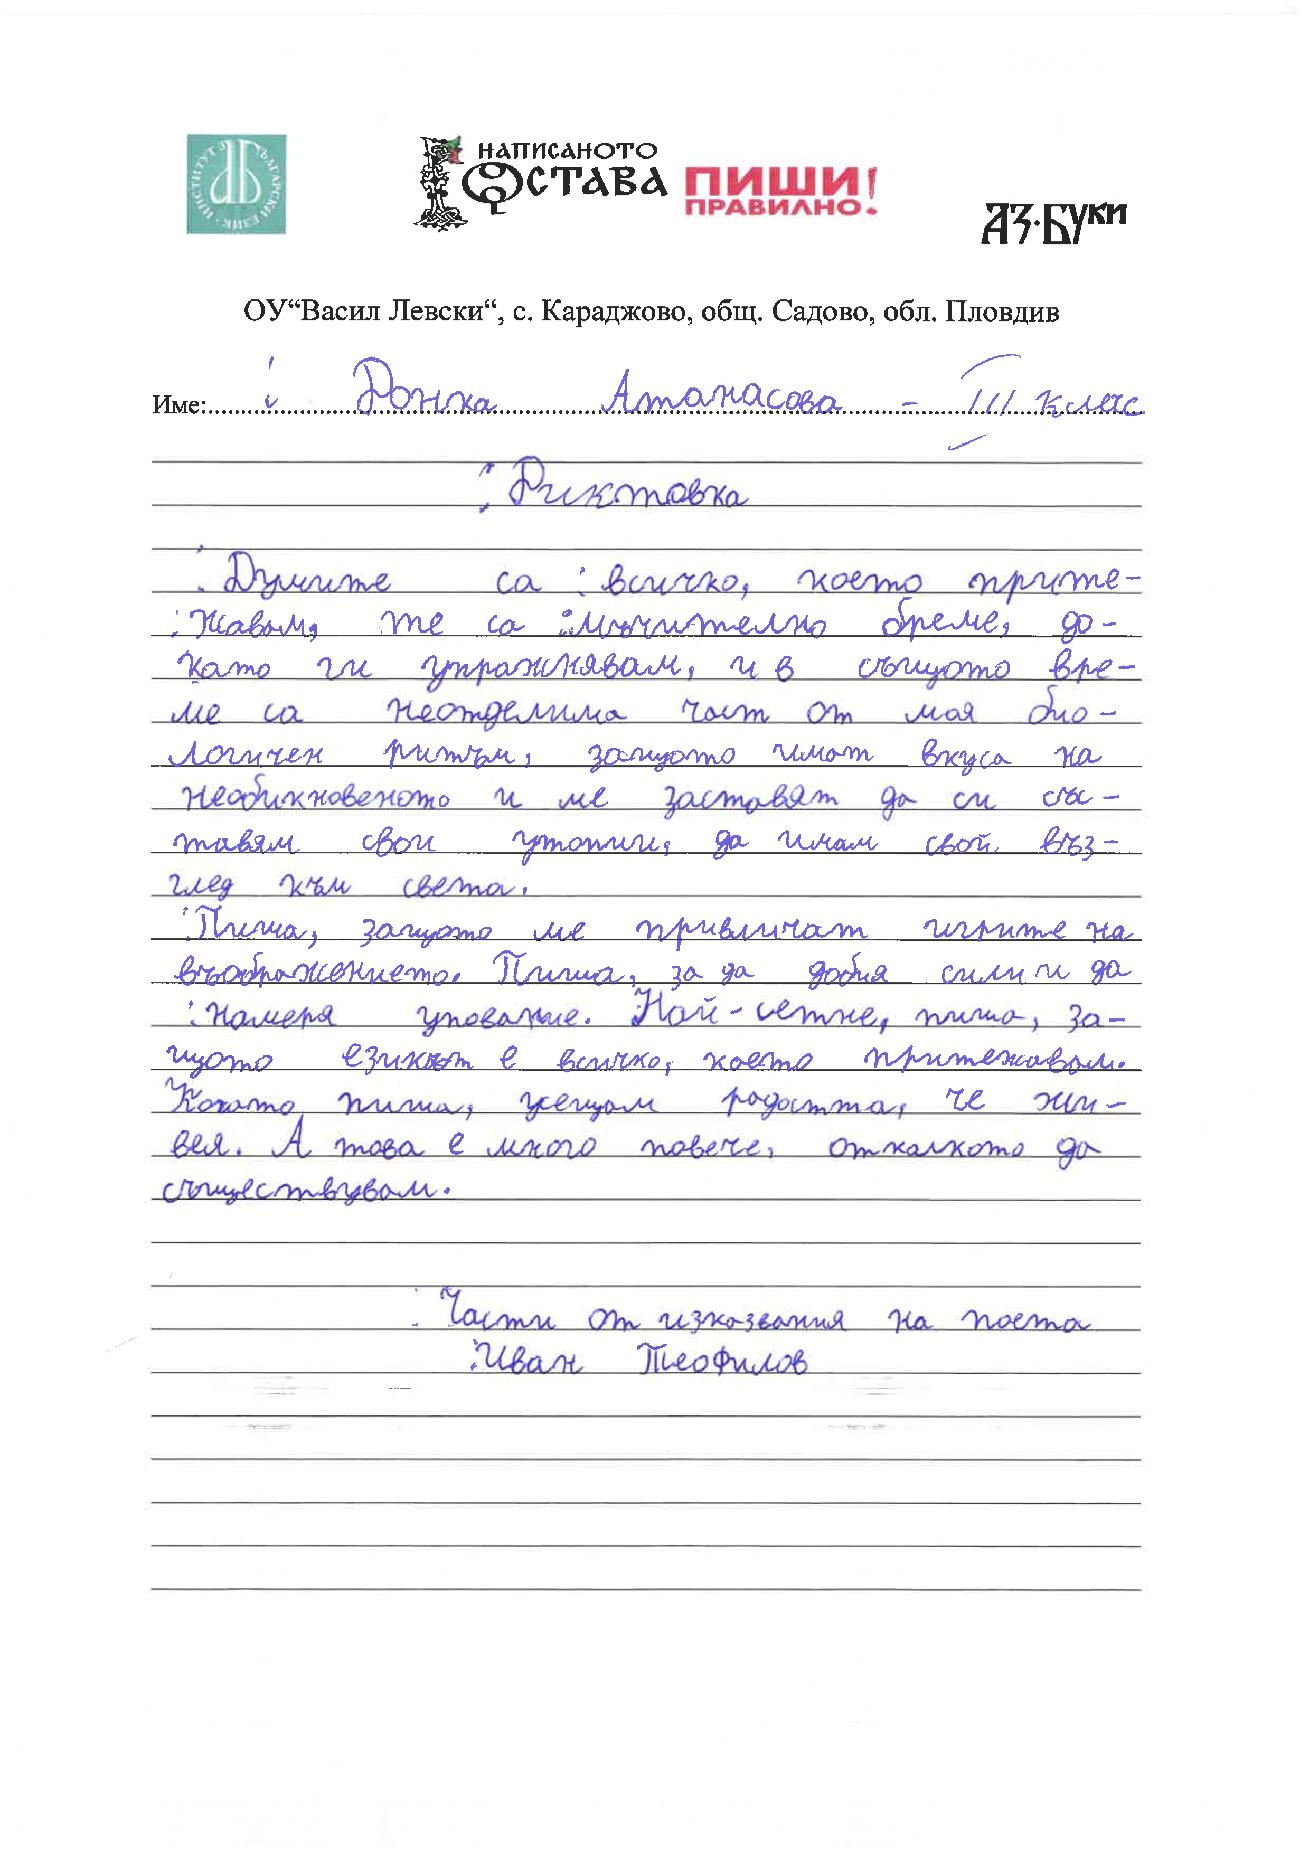 ИНСТИТУТ ЗА БЪЛГАРСКИ ЕЗИК
НАПИСАНОТО
ОСТАВА
ПИШИ
ПРАВИЛНО!
АЗ·БУКИ
ОУ“Васил Левски“, с. Караджово, общ. Садово, обл. Пловдив
Име: Донка Атанасова - III клас
Диктовка
Думите са всичко, което прите-
жавам, те са мъчително бреме, до-
като ги упражнявам, и в същото вре-
ме са неотделима част от моя био-
логичен ритъм, защото имат вкуса на
необикновеното и ме заставят да си със-
тавям свои утопии, да имам свой въз-
глед към света.
Пиша, защото ме привличат игрите на
въображението. Пиша, за да добия сили и да
намеря упование. Най-сетне, пиша, за-
щото езикът е всичко, което притежавам.
Когато пиша, усещам радостта, че жи-
вея. А това е много повече, отколкото да
съществувам.
Части от изказвания на поета
Иван Теофилов